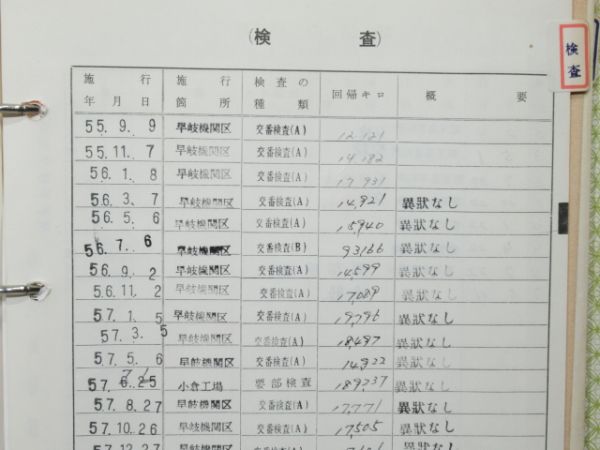 (検 査)
検査
施行年月日 施行箇所 検査の種類 回帰キロ 概要
55.9.9 早岐機関区 交番検査(A) 12,121
55.11.7 早岐機関区 交番検査(A) 14,182
56.1.8 早岐機関区 交番検査(A) 17,931
56.3.7 早岐機関区 交番検査(A) 14,921 異狀なし
56.5.6 早岐機関区 交番検査(A) 15,940 異狀なし
56.7.6 早岐機関区 交番検査(B) 93166 異狀なし
56.9.2 早岐機関区 交番検査(A) 14,599 異狀なし
56.11.2 早岐機関区 交番検査(A) 17,089 異狀なし
57.1.5 早岐機関区 交番検査(A) 19,796 異狀なし
57.3.5 早岐機関区 交番検査(A) 18,497 異狀なし
57.5.6 早岐機関区 交番検査(A) 14,922 異狀なし
57.6.25 小倉工場 要部検査 189237 異狀なし
57.8.27 早岐機関区 交番検査(A) 17,771 異狀なし
57.10.26 早岐機関区 交番検査(A) 17,505 異狀なし
57.12.27 早岐機関区 交番検査(A) 異狀なし